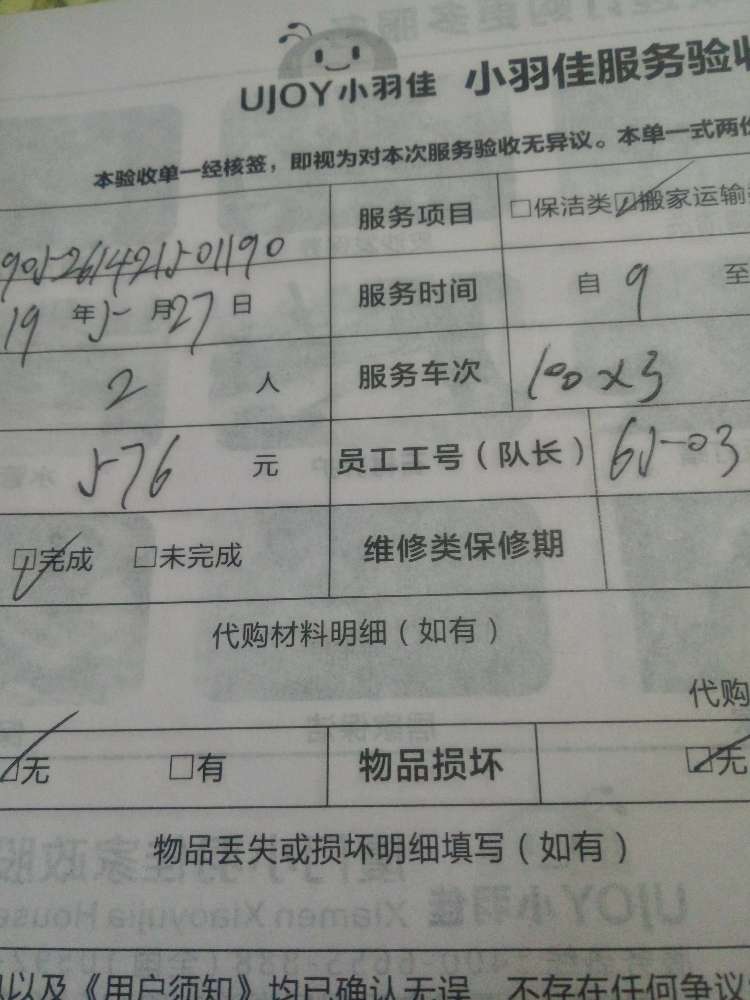 UJOY小羽佳 小羽佳服务验收
本验收单一经核签，即视为对本次服务验收无异议。本单一式两份
服务项目 □保洁类 ☑搬家运输
905261421501190
19年5月27日 服务时间 自 9 至
2 人 服务车次 100×3
576 元 员工工号（队长） 65-03
☑完成 □未完成 维修类保修期
代购材料明细（如有）
代购
☑无 □有 物品损坏 ☑无
物品丢失或损坏明细填写（如有）
以及《用户须知》均已确认无误，不存在任何争议